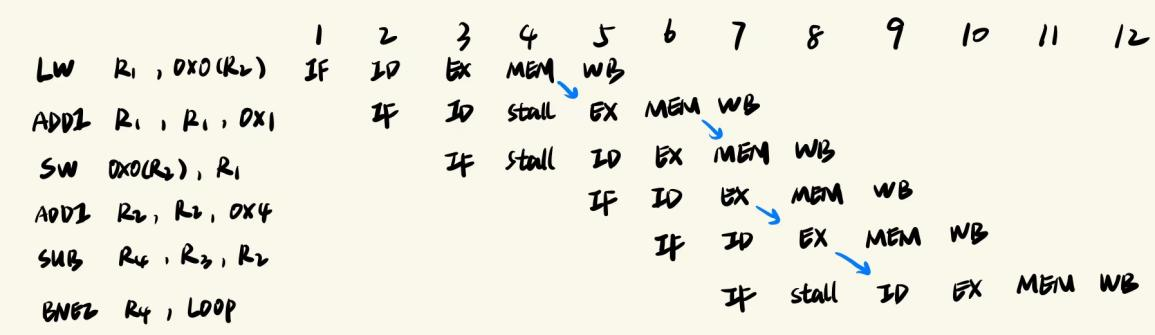 1 2 3 4 5 6 7 8 9 10 11 12
LW R1 , 0X0(R2) IF ID EX MEM WB
ADDI R1 , R1 , 0X1 IF ID stall EX MEM WB
SW 0X0(R2) , R1 IF stall ID EX MEM WB
ADDI R2 , R2 , 0X4 IF ID EX MEM WB
SUB R4 , R3 , R2 IF ID EX MEM WB
BNEZ R4 , LOOP IF stall ID EX MEM WB